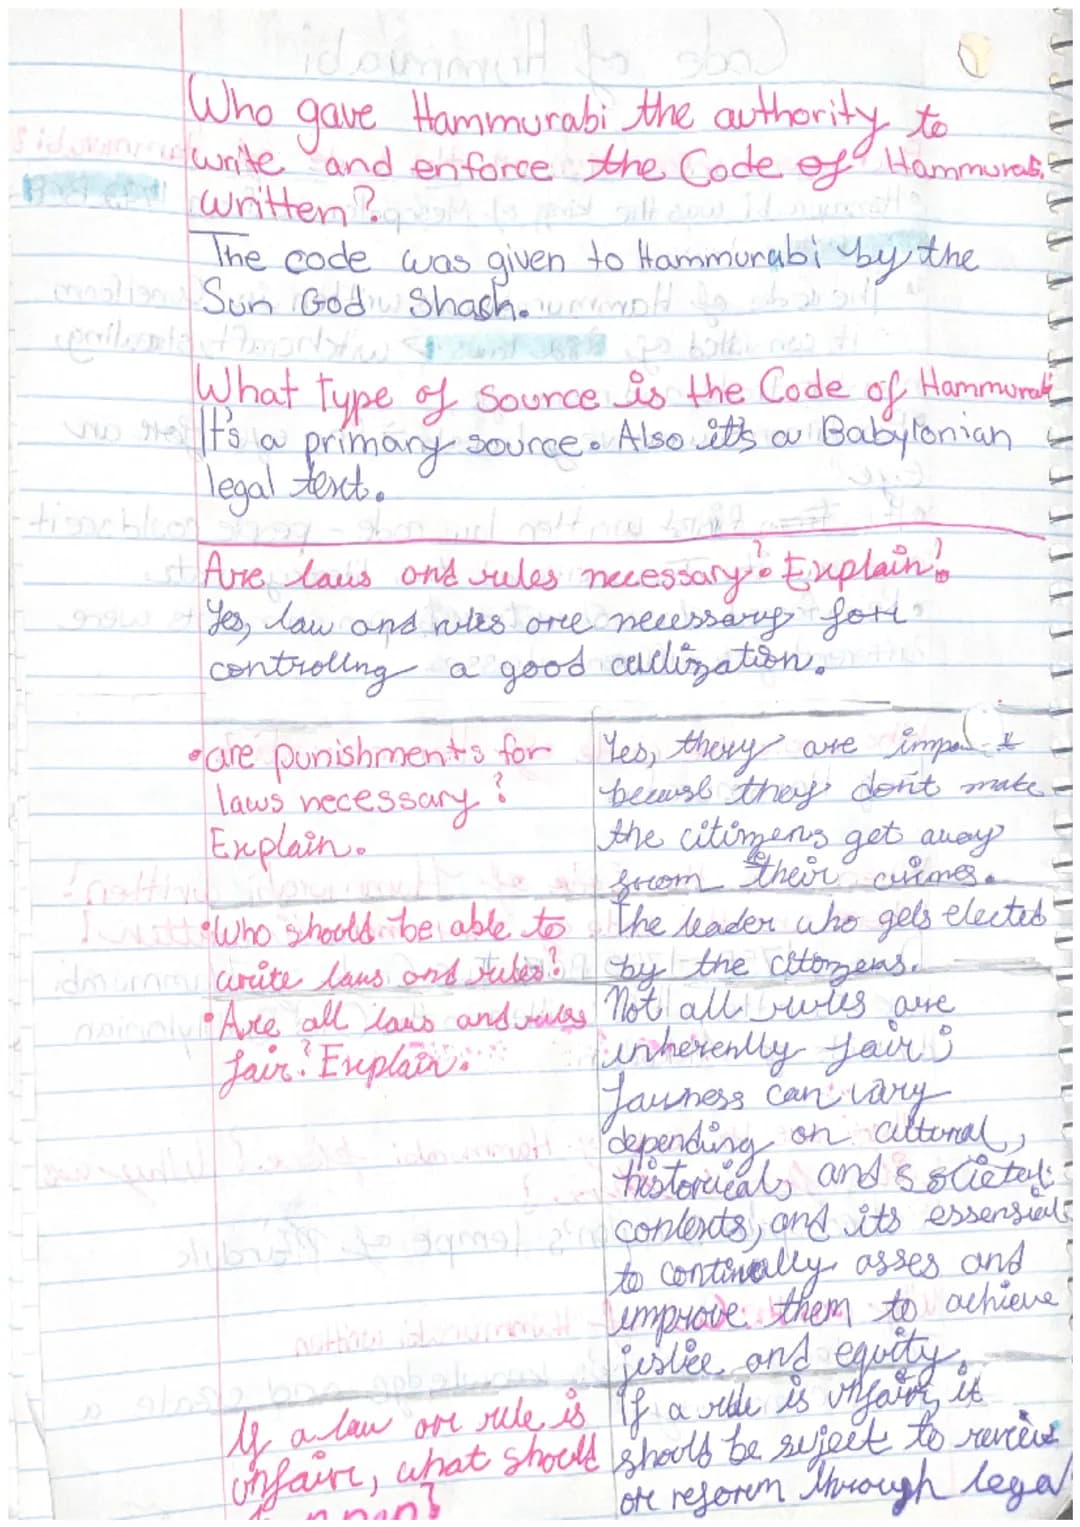 Who gave Hammurabi the authority to
write and enforce the Code of Hammurabi
written?
The code was given to Hammurabi by the
Sun God Shash.
What type of source is the Code of Hammurabi
It's a primary source. Also it's a Babylonian
legal text.
Are laws and rules necessary? Explain!
Yes, law and rules are necessary for
controllng a good
•are punishments for
laws necessary?
Explain.
Yes, they are
they don't make
the citizens get away
from their crimes.
•Who should be able to
write laws and rules?
The leader who gets elected
by the citozens.
•Are all laws and rules
fair? Explain.
Not all rules are
inherently fair;
fairness can vary
depending on cultural,
historical, and societal
contexts, and its essensial
to continually asses and
improve them to achieve
jestice and equity.
If a law or rule is
unfair, what should
If a rule is unfair, it
should be suject to review
or reform through legal